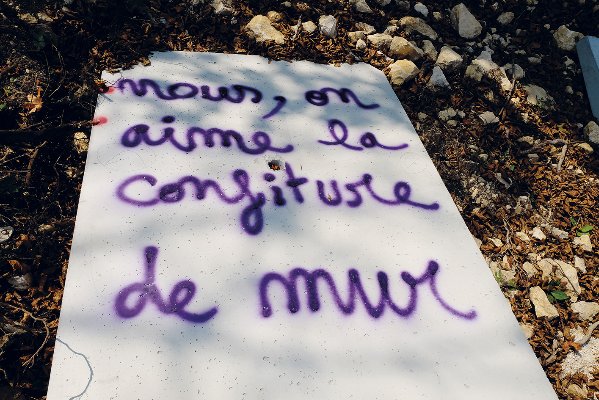 nous, on
aime la
confiture
de mur